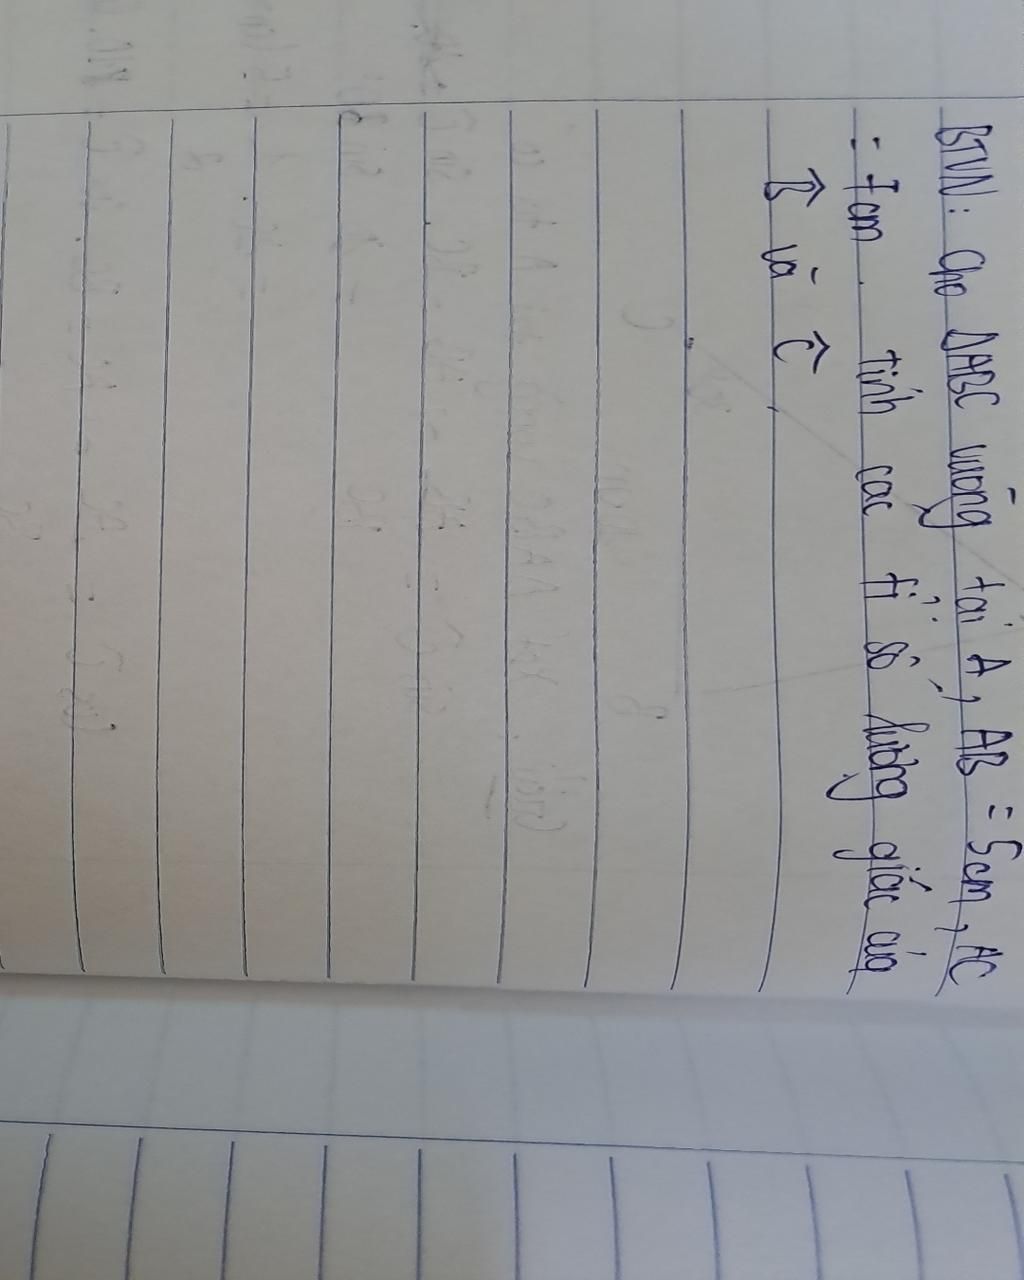 BTVN: Cho ΔABC vuông tại A, AB = 5cm, AC
= 7cm. tính các tỉ số lượng giác của
B̂ và Ĉ